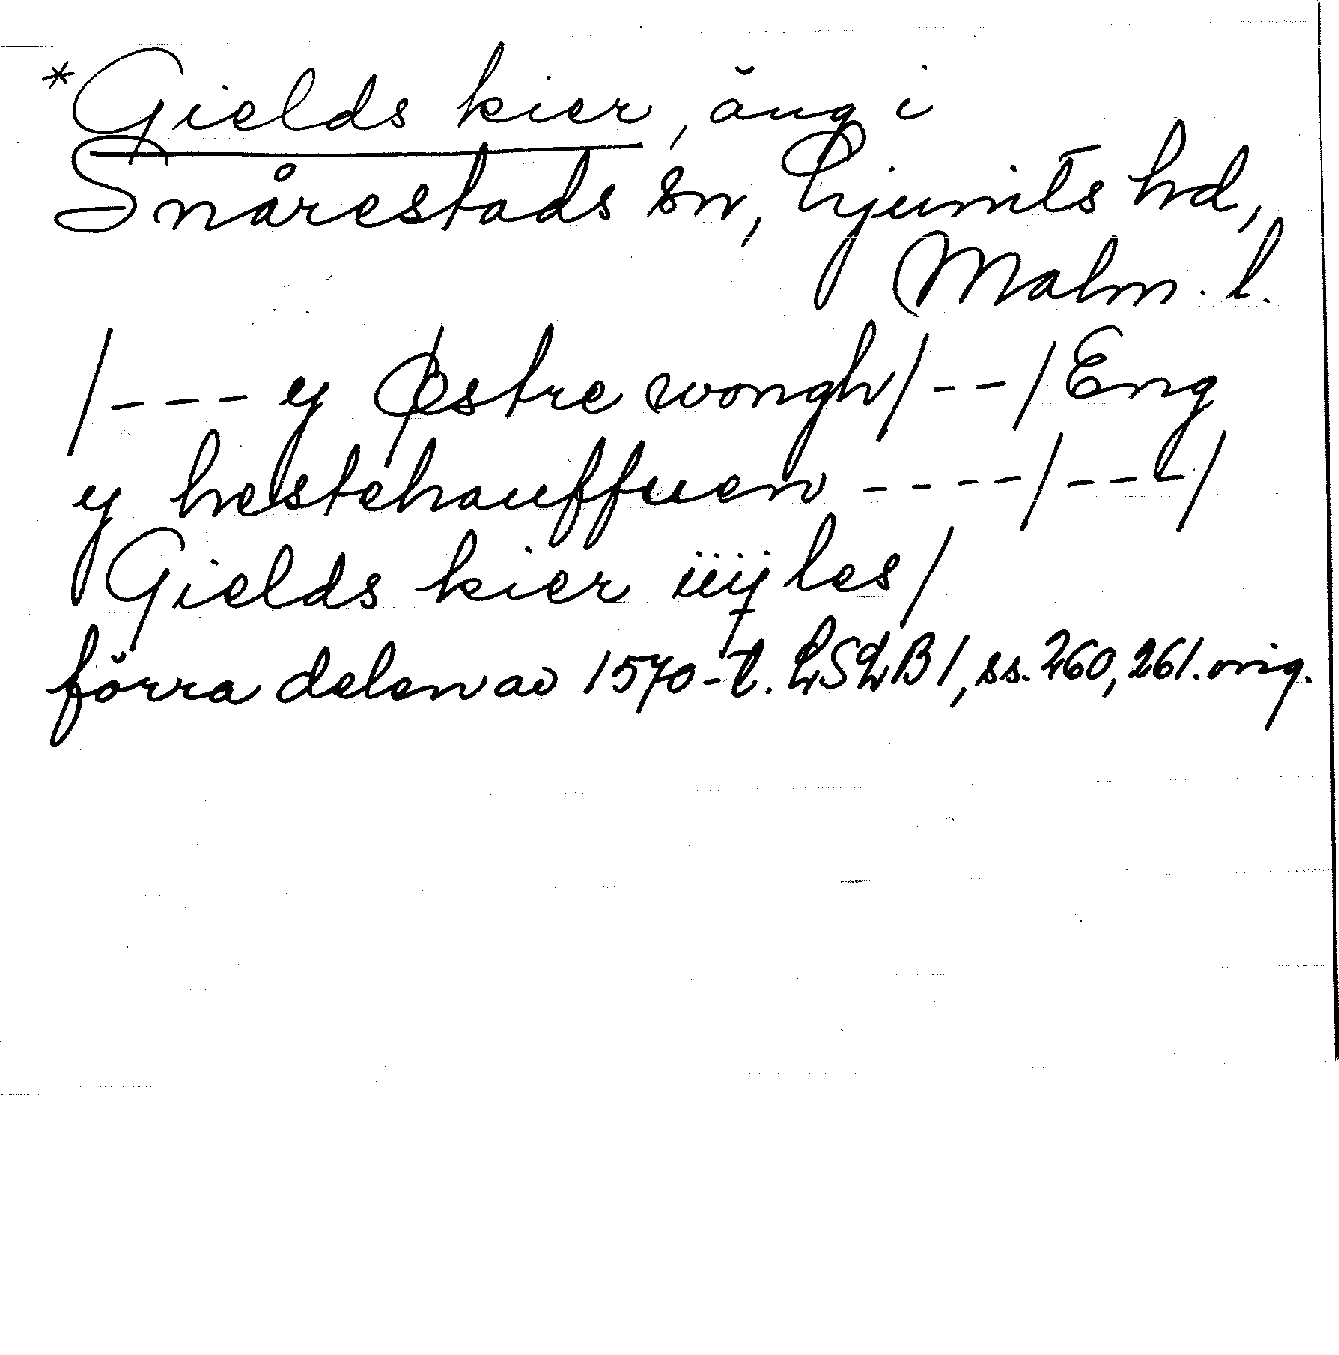 *Gields kier, äng i
Snårestads sn, Ljunits hd,
Malm. l.
/--- y Østre wongh/--/Eng
y hestehauffuen ----/---/
Gields kier iiij les/
förra delen av 1570-t. LSLB1, ss. 260, 261. orig.